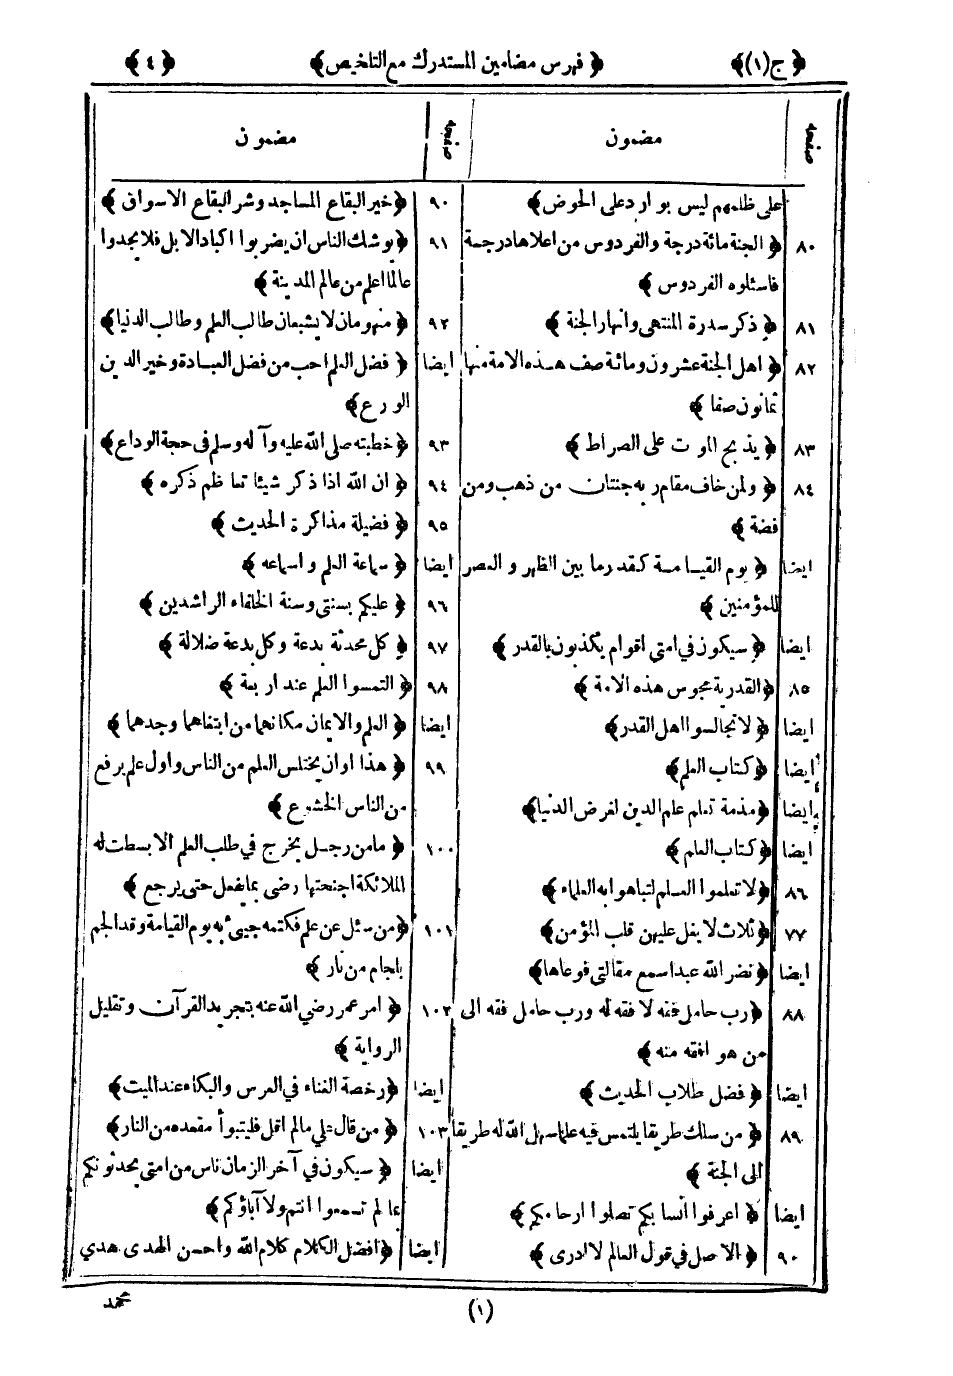 ﴿ ج(١)﴾ ﴿ فهرس مضامين المستدرك مع التلخيص﴾ ﴿ ٤ ﴾
صفحه مضمون
على ظلمهم ليس بوارد على الحوض﴾
٨٠ ﴿ الجنة مائة درجة والفردوس من اعلاها درجة
فاسئلوه الفردوس ﴾
٨١ ﴿ ذكر سدرة المنتهى وانهار الجنة ﴾
٨٢ ﴿ اهل الجنة عشرون ومائة صف هذه الامة منها
ثمانون صفا ﴾
٨٣ ﴿ يذبح الموت على الصراط ﴾
٨٤ ﴿ ولمن خاف مقام ربه جنتان من ذهب ومن
فضة ﴾
ايضا ﴿ يوم القيامة كقدر ما بين الظهر و العصر
للمؤمنين ﴾
ايضا ﴿ سيكون في امتي اقوام يكذبون بالقدر ﴾
٨٥ ﴿ القدرية مجوس هذه الامة ﴾
ايضا ﴿ لا تجالسوا اهل القدر﴾
ايضا ﴿ كتاب العلم﴾
ايضا ﴿ مذمة تعلم علم الدين لغرض الدنيا﴾
ايضا ﴿ كتاب العلم ﴾
٨٦ ﴿ لا تعلموا العلم لتباهوا به العلماء ﴾
٧٧ ﴿ ثلاث لا يغل عليهن قلب المؤمن ﴾
ايضا ﴿ نضر الله عبدا سمع مقالتي فوعاها﴾
٨٨ ﴿ رب حامل فقه لا فقه له ورب حامل فقه الى
من هو افقه منه ﴾
ايضا ﴿ فضل طلاب الحديث ﴾
٨٩ ﴿ من سلك طريقا يلتمس فيه علما سهل الله له طريقا
الى الجنة ﴾
ايضا ﴿ اعرفوا انسابكم تصلوا ارحامكم ﴾
٩٠ ﴿ الاصل في قول العالم لا ادرى ﴾
صفحه مضمون
٩٠ ﴿ خير البقاع المساجد وشر البقاع الاسواق ﴾
٩١ ﴿ يوشك الناس ان يضربوا اكباد الابل فلا يجدوا
عالما اعلم من عالم المدينة ﴾
٩٢ ﴿ منهومان لا يشبعان طالب العلم وطالب الدنيا﴾
ايضا ﴿ فضل العلم احب من فضل العبادة وخير الدين
الورع ﴾
٩٣ ﴿ خطبته صلى الله عليه وآله وسلم فى حجة الوداع ﴾
٩٤ ﴿ ان الله اذا ذكر شيئا تعاظم ذكره ﴾
٩٥ ﴿ فضيلة مذاكرة الحديث ﴾
ايضا ﴿ سماعة العلم و اسماعه ﴾
٩٦ ﴿ عليكم بسنتى وسنة الخلفاء الراشدين ﴾
٩٧ ﴿ كل محدثة بدعة وكل بدعة ضلالة ﴾
٩٨ ﴿ التمسوا العلم عند اربعة ﴾
ايضا ﴿ العلم والايمان مكانهما من ابتغاهما وجدهما ﴾
٩٩ ﴿ هذا اوان يختلس العلم من الناس واول علم يرفع
من الناس الخشوع ﴾
١٠٠ ﴿ ما من رجل يخرج في طلب العلم الا بسطت له
الملائكة اجنحتها رضى بما يفعل حتى يرجع ﴾
١٠١ ﴿ من سئل عن علم فكتمه جيئ به يوم القيامة وقد الجم
بلجام من نار ﴾
١٠٢ ﴿ امر عمر رضي الله عنه بتجريد القرآن وتقليل
الرواية ﴾
ايضا ﴿ رخصة الغناء في العرس والبكاء عند الميت ﴾
١٠٣ ﴿ من قال علي مالم اقل فليتبوأ مقعده من النار﴾
ايضا ﴿ سيكون في آخر الزمان ناس من امتى يحدثونكم
بمالم تسمعوا انتم ولا آباؤكم ﴾
ايضا ﴿ افضل الكلام كلام الله واحسن الهدى هدي
(١) محمد